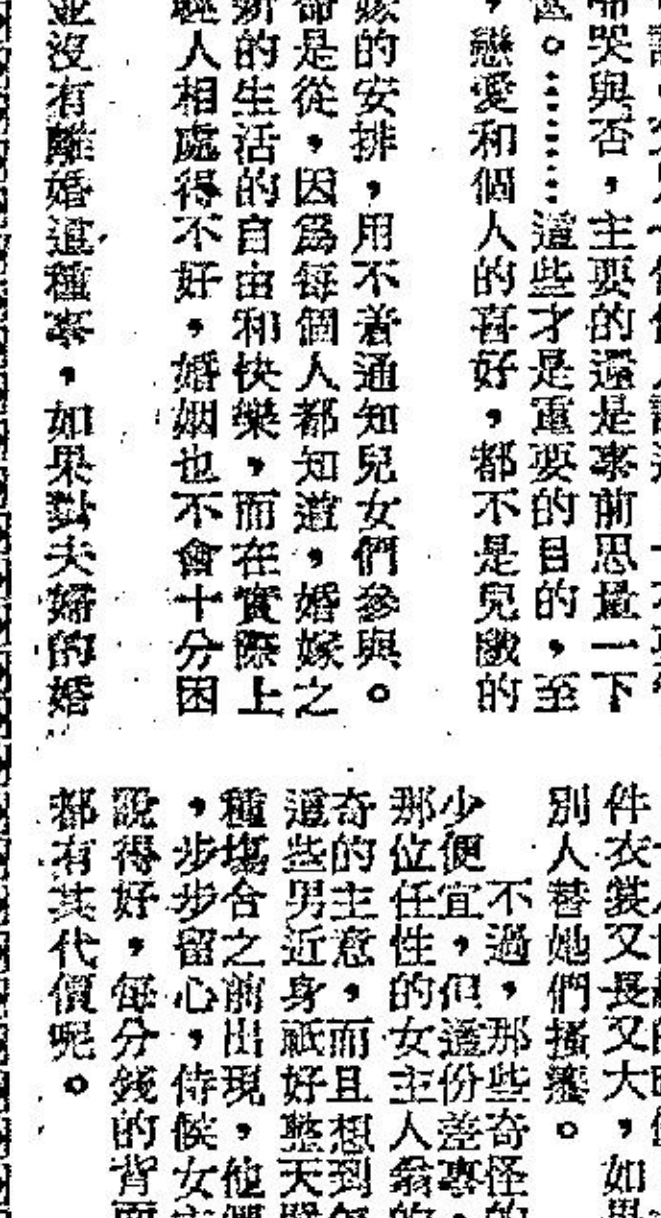 哭與否，主要的還是事前思量一下
。………這些才是重要的目的，至
，戀愛和個人的喜好，都不是兒戲的
嫁的安排，用不着通知兒女們參與。
命是從，因爲每個人都知道，婚嫁之
新的生活的自由和快樂，而在實際上
輕人相處得不好，婚姻也不會十分困
並沒有離婚這種事，如果對夫婦的婚
件衣裳又長又大，如
別人替她們搔癢。
不過，那些奇怪的
少便宜，但這份差事，
那位任性的女主人翁的
奇的主意，而且想到
這些男近身祇好整天
種場合之前出現，他們
，步步留心，侍候女主
說得好，每分錢的背面
都有其代價呢。